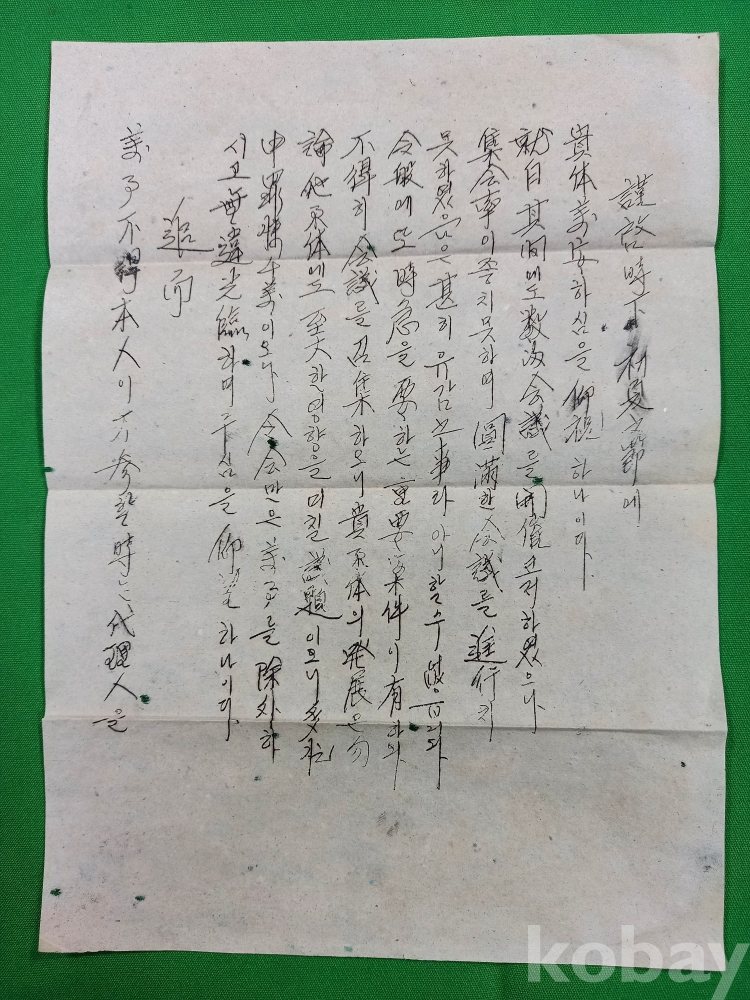 謹啓時下初夏之節에
貴体萬安하심을 仰祝하나이다
就白 其間에도 數次 会議를 開催코저 하였으나
集合率이 좋지못하며 圓滿한 会議를 進行치
못하였음은 甚히 유감之事라 아니할수 없읍니다
今般에 또 時急을 要하는 重要案件이 有하와
不得히 会議를 召集하오니 貴 体의 発展은 勿
論 他 体에도 至大한 영향을 미칠 議題이오니 多忙
中 罪悚千萬이오나 今会만은 萬事를 除外하
시고 無違光臨하여 주심을 仰望하나이다
追而
萬事不得 本人이 不參할 時는 代理人을
kobay